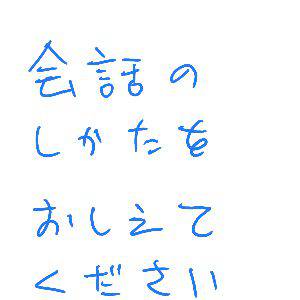 会話の
しかたを
おしえて
ください